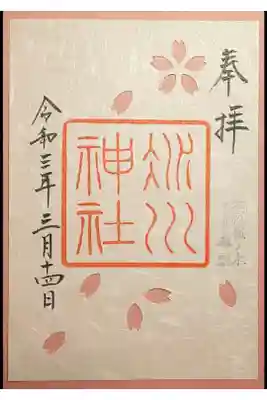 奉拝
氷川
神社
令和三年三月十四日